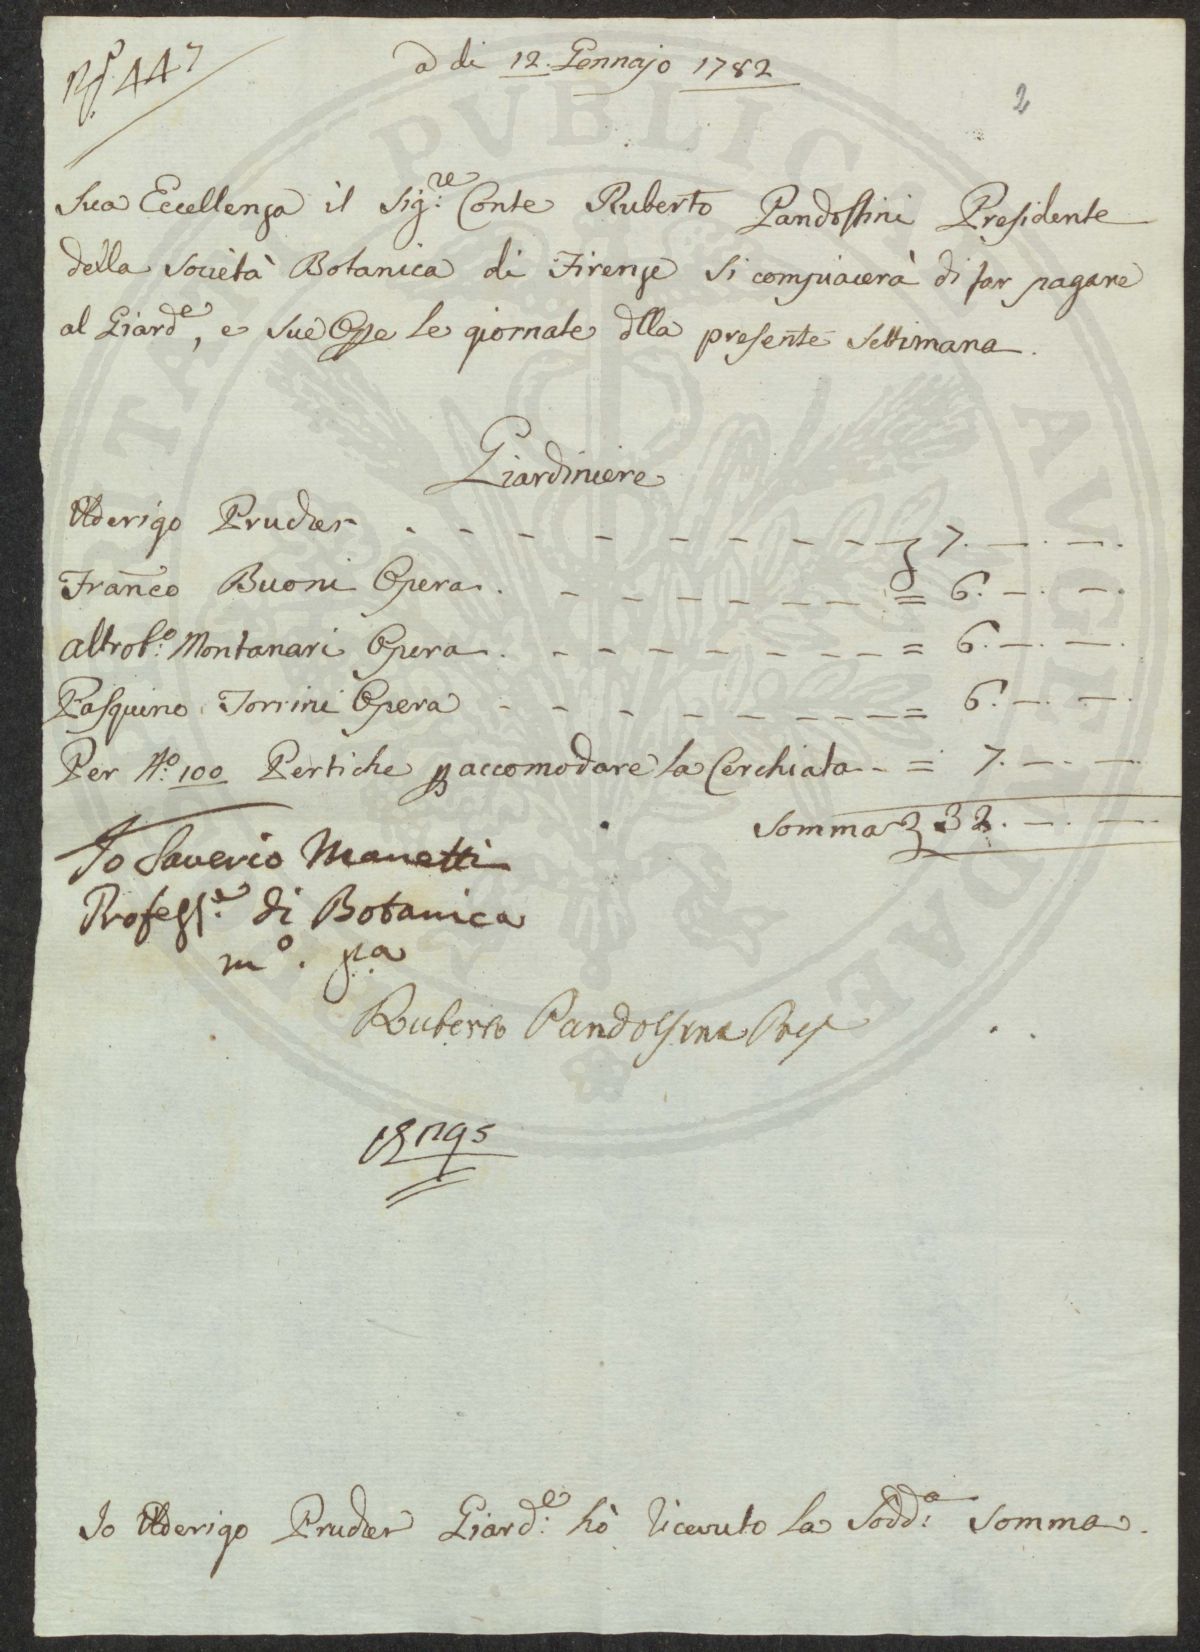 447
a di 12. Gennajo 1782
2
Sua Eccellenza il Sig.re Conte Ruberto Pandolfini Presidente
della Società Botanica di Firenze si compiacerà di far pagare
al Giard.e, e sue Ope le giornate dlla presente Settimana.
Giardiniere
Ulderigo Prucker - - - - - - - - 7. —. —.
Franco Buoni Opera. - - - - - - = 6. —. —.
Montanari Opera. - - - - - - = 6. —. —.
Pasquino Torrini Opera - - - - - - = 6. —. —.
Per No. 100 Pertiche p accomodare la Cerchiata - = 7. —. —
Somma 32. —. —
Io Saverio Manetti
Profess.e di Botanica
mo. pa
Ruberto Pandolfini Pres
Io Ulderigo Prucker Giard.e hò ricevuto la Sodd.a Somma.
PVBLICAE AVGENDAE